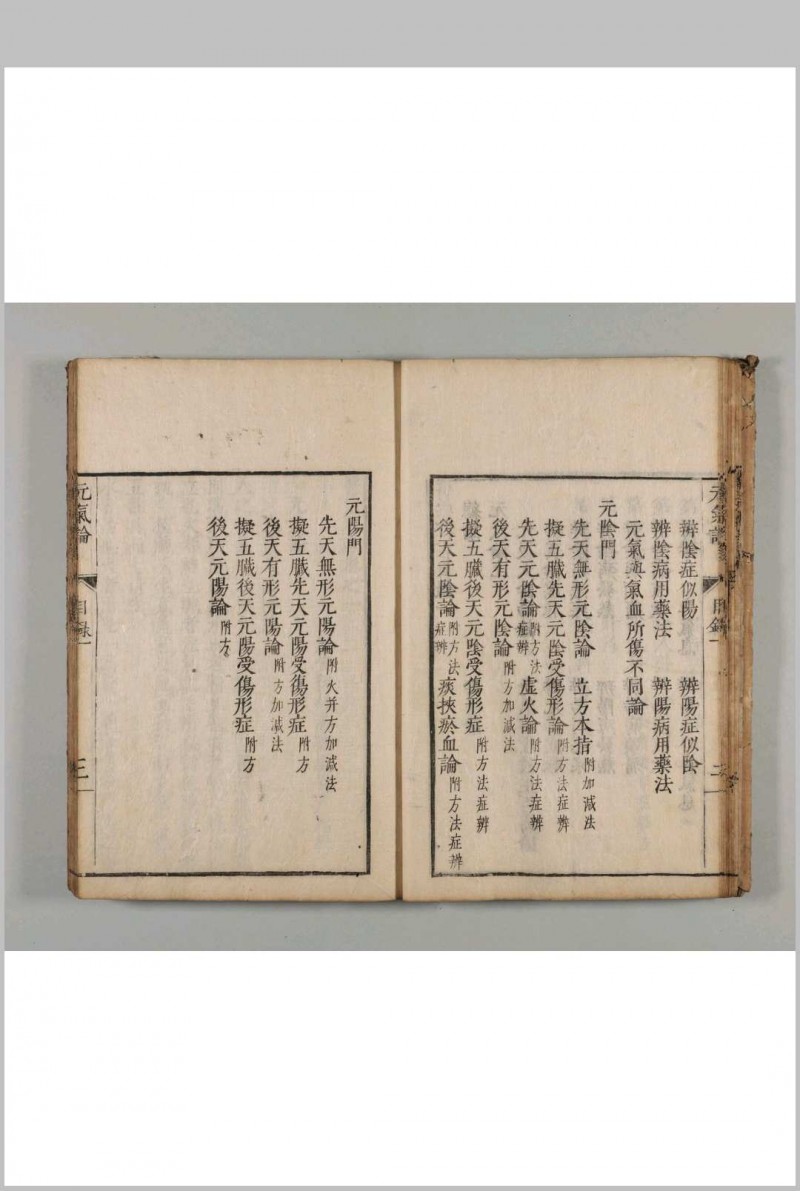 元氣論 目錄 二
辨陰症似陽 辨陽症似陰
辨陰病用藥法 辨陽病用藥法
元氣與氣血所傷不同論
元陰門
先天無形元陰論 立方本指附加減法
擬五臟先天元陰受傷形論附方法症辨
先天元陰論附方法症辨 虛火論附方法症辨
後天有形元陰論附方加減法
擬五臟後天元陰受傷形症附方法症辨
後天元陰論附方法症辨 痰挾瘀血論附方法症辨
元陽門
先天無形元陽論附火并方加減法
擬五臟先天元陽受傷形症附方
後天有形元陽論附方加減法
擬五臟後天元陽受傷形症附方
後天元陽論附方
元氣論 目錄 三